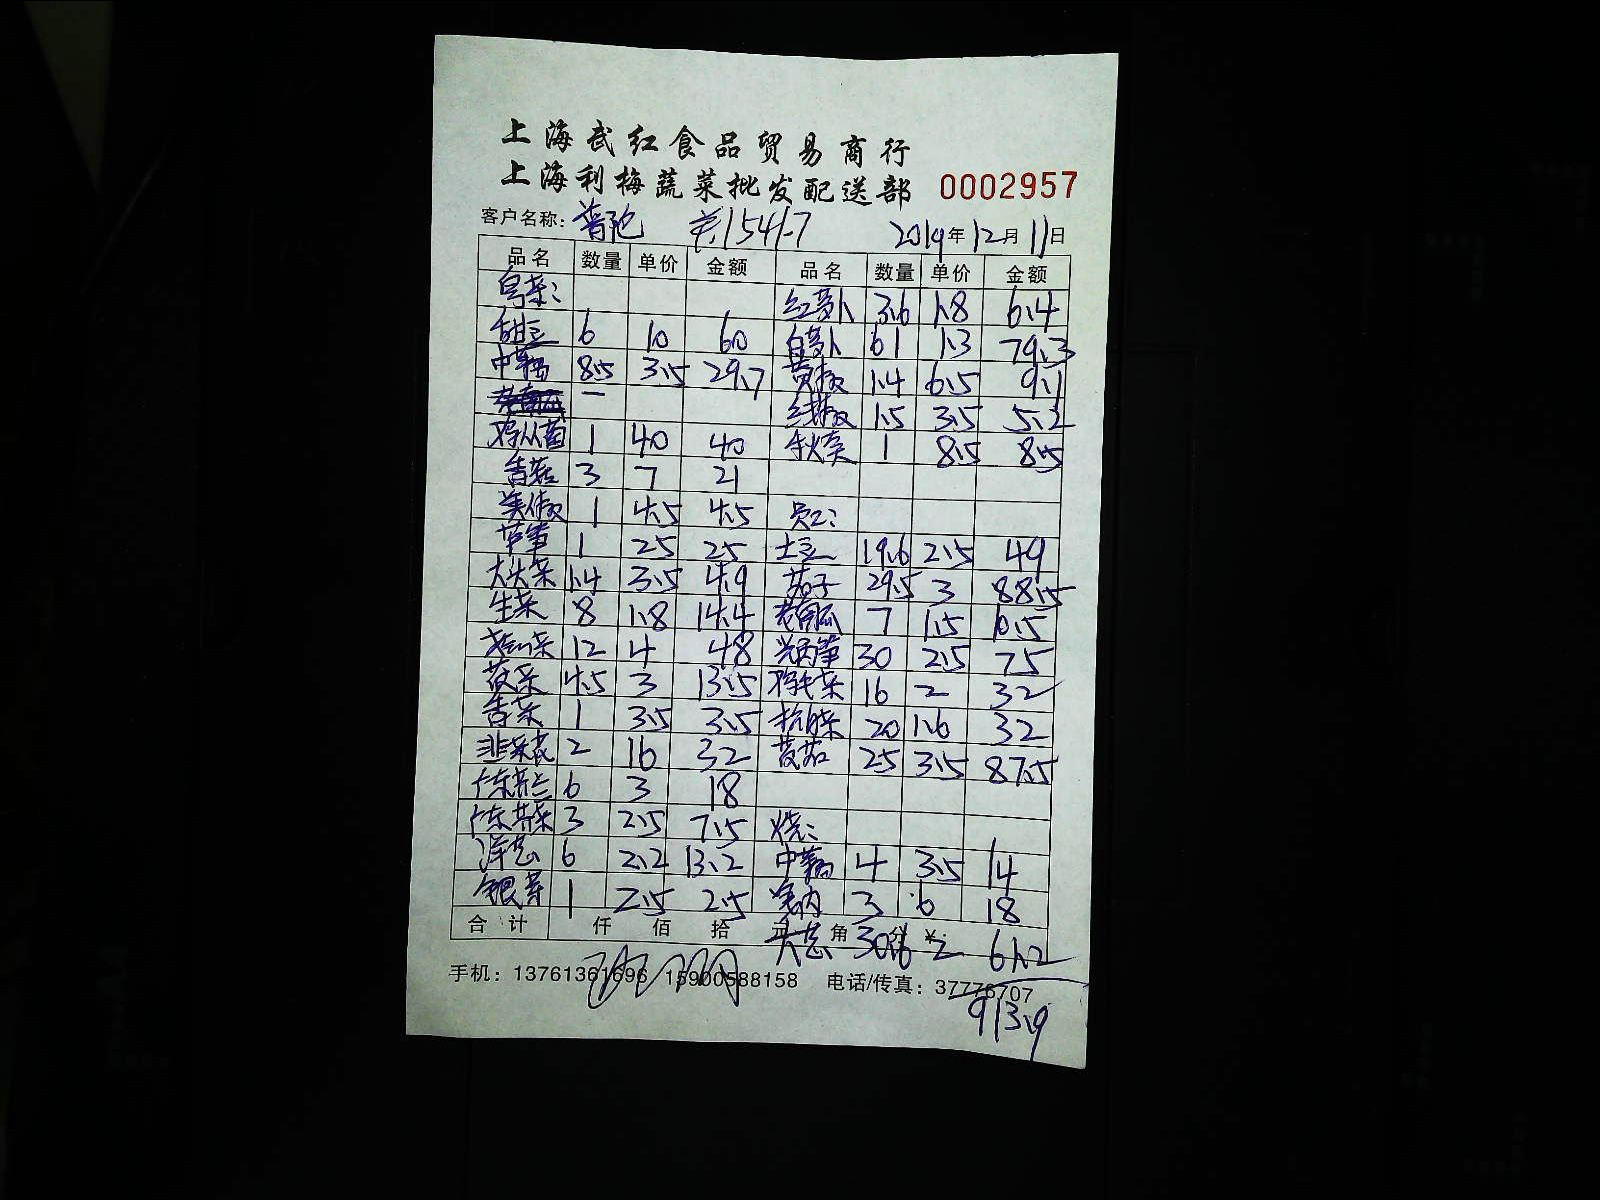 上海武红食品贸易商行
上海利梅蔬菜批发配送部 0002957
客户名称: 1541-7 2019年12月11日
品名 数量 单价 金额 品名 数量 单价 金额
粤菜: 红萝卜 3.6 1.8 6.4
甜豆 6 10 60 白萝卜 61 1.3 79.3
中菇 8.5 3.5 29.7 黄椒 1.4 6.5 9.1
— 线椒 1.5 3.5 5.2
鸡从菌 1 40 40 1 8.5 8.5
香菇 3 7 21
美椒 1 4.5 4.5 员工:
芦笋 1 25 25 土豆 19.6 2.5 49
大头菜 1.4 3.5 4.9 茄子 29.5 3 88.5
生菜 8 1.8 14.4 老南瓜 7 1.5 10.5
12 4 48 莴笋 30 2.5 75
菠菜 4.5 3 13.5 鸡毛菜 16 2 32
香菜 1 3.5 3.5 杭白菜 20 1.6 32
韭菜花 2 16 32 茭茹 25 3.5 87.5
广东芥兰 6 3 18
广东菜 3 2.5 7.5 烧:
洋葱 6 2.2 13.2 中菇 4 3.5 14
银芽 1 2.5 2.5 3 6 18
合计 仟 佰 拾 元 角 分 ¥:
大葱 30.6 2 61.2
手机: 13761361696 15900588158 电话/传真: 37776707
913.9